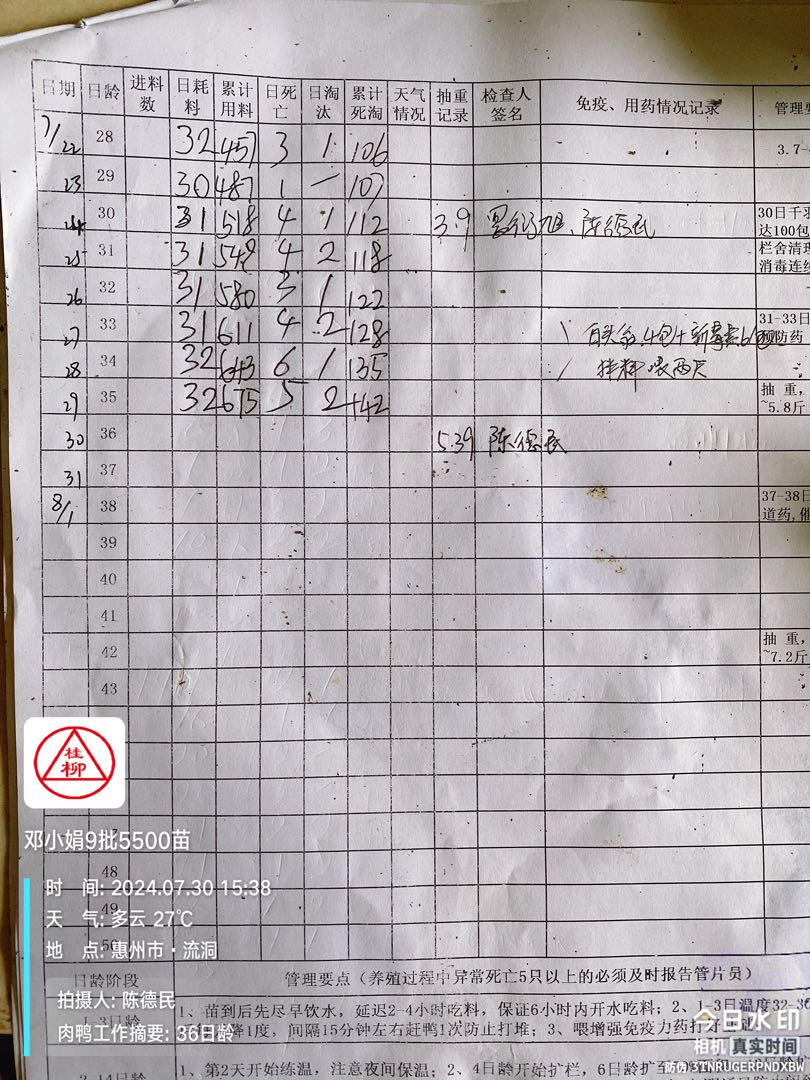 日期 日龄 进料数 日耗料 累计用料 日死亡 日淘汰 累计死淘 天气情况 抽重记录 检查人签名 免疫、用药情况记录 管理要
7/22 28 32 457 3 1 106 3.7-
23 29 30 487 1 一 107
24 30 31 518 4 1 112 3.9 陈德民 30日千羽
达100包
25 31 31 549 4 2 118 栏舍清理
消毒连续
26 32 31 580 3 1 122
27 33 31 611 4 2 128 31-33日
预防药
28 34 32 643 6 1 135 拌料喂两天
29 35 32 675 5 2 142 抽重,
~5.8斤
30 36 5.39 陈德民
31 37
8/1 38 37-38日
道药,催
39
40
41
42 抽重,
~7.2斤
43
桂
柳
邓小娟9批5500苗
48
时 间: 2024.07.30 15:38
49
天 气: 多云 27℃
50
地 点: 惠州市·流洞
日龄阶段 管理要点(养殖过程中异常死亡5只以上的必须及时报告管片员)
拍摄人: 陈德民
1-3日龄 1、苗到后先尽早饮水,延迟2-4小时吃料,保证6小时内开水吃料;2、1-3日温度32-36
肉鸭工作摘要: 36日龄
降1度,间隔15分钟左右赶鸭1次防止打堆;3、喂增强免疫力药打
今日水印
相机 真实时间
1、第2天开始练温,注意夜间保温;2、4日龄开始扩栏,6日龄扩至
防伪 3TNRUGERPNDXBW